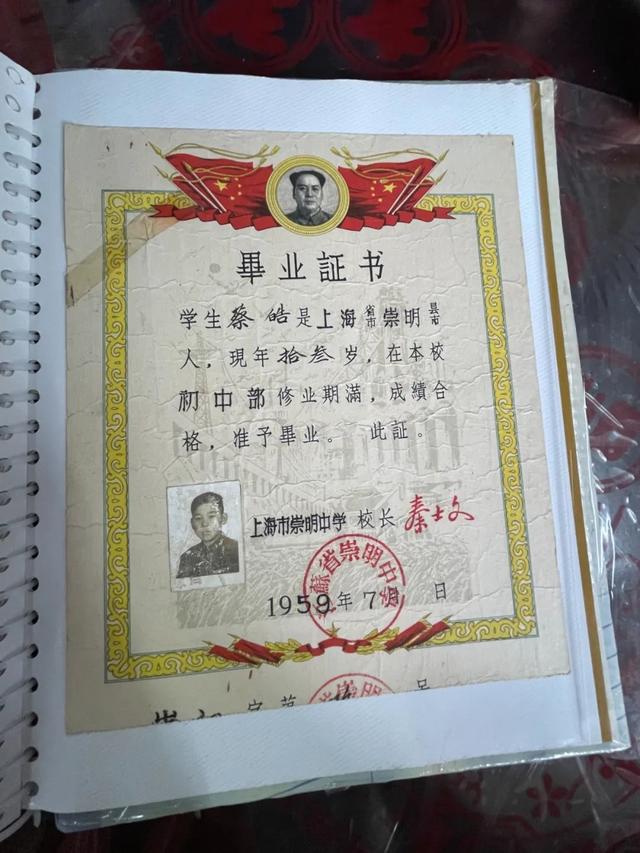 畢业証书
学生蔡皓是上海省市崇明县市
人，現年拾叁岁，在本校
初中部修业期滿，成績合
格，准予畢业。 此証。
上海市崇明中学 校长 秦士文
蘇省崇明中學
1959年7月 日
崇 字第 号